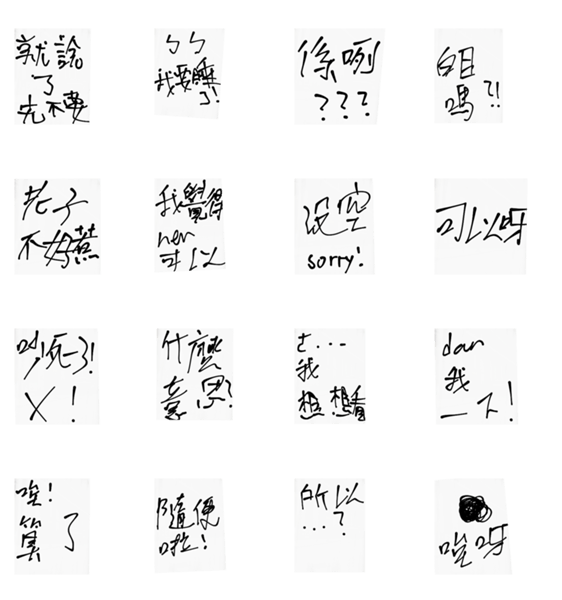 就說
了
先不要
ㄅㄅ
我要睡
了!
係咧
???
白目
嗎?!
老子
不好惹
我覺得
hen
可以
沒空
sorry!
可以呀
吵死了!
X!
什麼
意思?
ㄜ...
我
想想看
dan
我
一下!
唉!
算了
隨便
啦!
所以
...?
呀